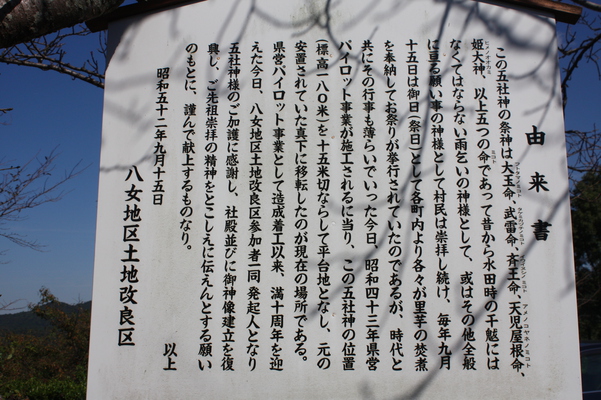 由来書
この五社神の祭神は大玉命、武雷命、斉王命、天児屋根命、
姫大神、以上五つの命であって昔から水田時の干魃には
なくてはならない雨乞いの神様として、或はその他全般
に亘る願い事の神様として村民は崇拝し続け、毎年九月
十五日は御日（祭日）として各町内より各々が里芋の煮
を奉納してお祭りが挙行されていたのであるが、時代と
共にその行事も薄らいでいった今日、昭和四十三年県営
パイロット事業が施工されるに当り、この五社神の位置
（標高一八〇米）を十五米切ならして平台地となし、元の
安置されていた真下に移転したのが現在の場所である。
県営パイロット事業として造成着工以来、満十周年を迎
えた今日、八女地区土地改良区参加者一同発起人となり
五社神様のご加護に感謝し、社殿並びに御神像建立を復
興し、ご先祖崇拝の精神をとこしえに伝えんとする願い
のもとに、謹んで献上するものなり。
以上
昭和五十二年九月十五日
八女地区土地改良区